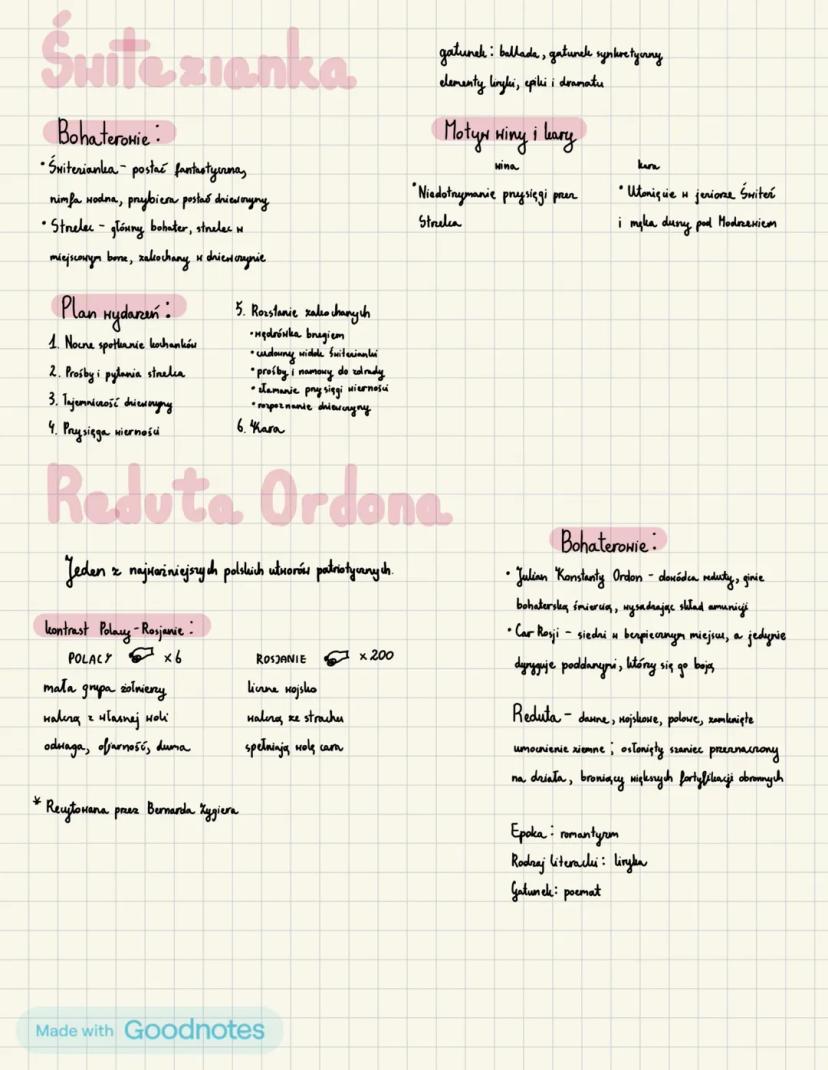 Świtezianka
gatunek: ballada, gatunek synkretyczny
elementy liryki, epiki i dramatu
Bohaterowie:
• Świtezianka - postać fantastyczna,
nimfa wodna, przybiera postać dziewczyny
• Strzelec - główny bohater, strzelec w
miejscowym borze, zakochany w dziewczynie
Motyw winy i kary
wina
• Niedotrzymanie przysięgi przez
Strzelca
kara
• Utonięcie w jeziorze Świteź
i męka duszy pod Modrzewiem
Plan wydarzeń:
1. Nocne spotkanie kochanków
2. Prośby i pytania strzelca
3. Tajemniczość dziewczyny
4. Przysięga wierności
5. Rozstanie zakochanych
• wędrówka brzegiem
• cudowny widok Świtezianki
• prośby i namowy do zdrady
• złamanie przysięgi wierności
• rozpoznanie dziewczyny
6. Kara
Reduta Ordona
Jeden z najważniejszych polskich utworów patriotycznych.
kontrast Polacy-Rosjanie:
POLACY x6
mała grupa żołnierzy
walczą z własnej woli
odwaga, ofiarność, duma
ROSJANIE x200
liczne wojsko
walczą ze strachu
spełniają wolę cara
* Recytowana przez Bernarda Zygiera
Bohaterowie:
• Julian Konstanty Ordon - dowódca reduty, ginie
bohaterską śmiercią, wysadzając skład amunicji
• Car Rosji - siedzi w bezpiecznym miejscu, a jedynie
dyryguje poddanymi, który się go boją
Reduta - dawne, wojskowe, polowe, zamknięte
umocnienie ziemne; osłonięty szaniec przeznaczony
na działa, broniący większych fortyfikacji obronnych
Epoka: romantyzm
Rodzaj literacki: liryka
Gatunek: poemat
Made with Goodnotes